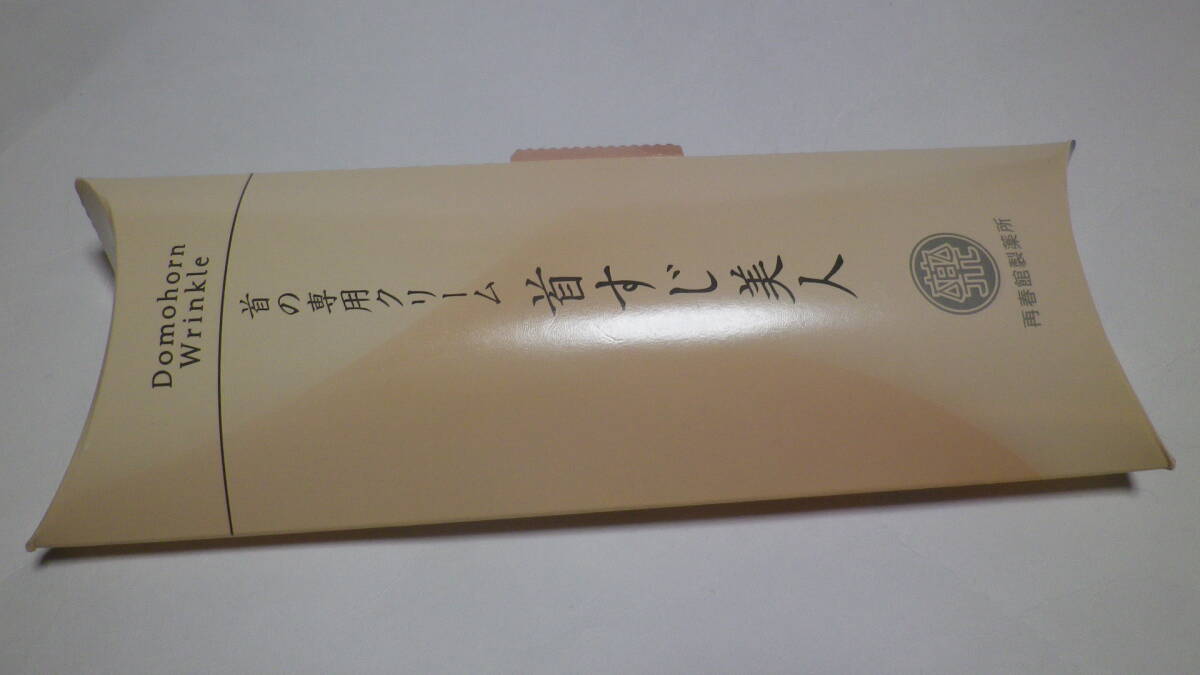 Domohorn
Wrinkle
首の専用クリーム
首すじ美人
再春館製薬所